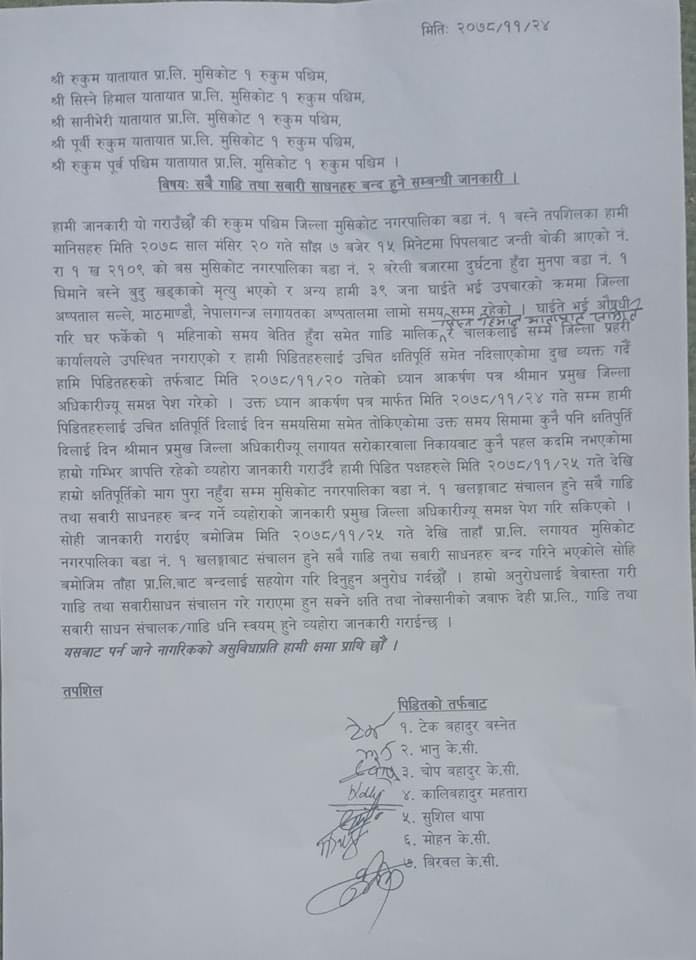 मिति: २०७८/११/२४
श्री रुकुम यातायात प्रा.लि. मुसिकोट १ रुकुम पश्चिम,
श्री सिस्ने हिमाल यातायात प्रा.लि. मुसिकोट १ रुकुम पश्चिम,
श्री सानीभेरी यातायात प्रा.लि. मुसिकोट १ रुकुम पश्चिम,
श्री पूर्वी रुकुम यातायात प्रा.लि. मुसिकोट १ रुकुम पश्चिम,
श्री रुकुम पूर्व पश्चिम यातायात प्रा.लि. मुसिकोट १ रुकुम पश्चिम ।
विषय: सबै गाडि तथा सवारी साधनहरु बन्द हुने सम्बन्धी जानकारी ।
हामी जानकारी यो गराउँछौं की रुकुम पश्चिम जिल्ला मुसिकोट नगरपालिका वडा नं. १ बस्ने तपशिलका हामी
मानिसहरु मिति २०७८ साल मंसिर २० गते साँझ ७ बजेर १५ मिनेटमा पिपलबाट जन्ती बोकी आएको नं.
रा १ ख २१०९ को बस मुसिकोट नगरपालिका वडा नं. २ बरेली बजारमा दुर्घटना हुँदा मुनपा वडा नं. १
घिमाने बस्ने बुदु खड्काको मृत्यु भएको र अन्य हामी ३९ जना घाईते भई उपचारको क्रममा जिल्ला
अष्पताल सल्ले, माठमाण्डौ, नेपालगन्ज लगायतका अष्पतालमा लामो समय सम्म रहेको । घाईते भई औषधी
गरि घर फर्केको १ महिनाको समय बेतित हुँदा समेत गाडि मालिक र चालकलाई सम्म जिल्ला प्रहरी
कार्यालयले उपस्थित नगराएको र हामी पिडितहरुलाई उचित क्षतिपूर्ति समेत नदिलाएकोमा दुख व्यक्त गर्दै
हामि पिडितहरुको तर्फबाट मिति २०७८/११/२० गतेको ध्यान आकर्षण पत्र श्रीमान प्रमुख जिल्ला
अधिकारीज्यू समक्ष पेश गरेको । उक्त ध्यान आकर्षण पत्र मार्फत मिति २०७८/११/२४ गते सम्म हामी
पिडितहरुलाई उचित क्षतिपूर्ति दिलाई दिन समयसिमा समेत तोकिएकोमा उक्त समय सिमामा कुनै पनि क्षतिपुर्ति
दिलाई दिन श्रीमान प्रमुख जिल्ला अधिकारीज्यू लगायत सरोकारवाला निकायबाट कुनै पहल कदमि नभएकोमा
हाम्रो गम्भिर आपत्ति रहेको व्यहोरा जानकारी गराउँदै हामी पिडित पक्षहरुले मिति २०७८/११/२५ गते देखि
हाम्रो क्षतिपूर्तिको माग पुरा नहुँदा सम्म मुसिकोट नगरपालिका वडा नं. १ खलङ्गाबाट संचालन हुने सबै गाडि
तथा सवारी साधनहरु बन्द गर्ने व्यहोराको जानकारी प्रमुख जिल्ला अधिकारीज्यू समक्ष पेश गरि सकिएको ।
सोही जानकारी गराईए बमोजिम मिति २०७८/११/२५ गते देखि ताहाँ प्रा.लि. लगायत मुसिकोट
नगरपालिका वडा नं. १ खलङ्गाबाट संचालन हुने सबै गाडि तथा सवारी साधनहरु बन्द गरिने भएकोले सोहि
बमोजिम ताँहा प्रा.लि.बाट बन्दलाई सहयोग गरि दिनुहुन अनुरोध गर्दछौं । हाम्रो अनुरोधलाई बेवास्ता गरी
गाडि तथा सवारीसाधन संचालन गरे गराएमा हुन सक्ने क्षति तथा नोक्सानीको जवाफ देही प्रा.लि., गाडि तथा
सवारी साधन संचालक/गाडि धनि स्वयम् हुने व्यहोरा जानकारी गराईन्छ ।
यसबाट पर्न जाने नागरिकको असुविधाप्रति हामी क्षमा प्रार्थि छौं ।
तपशिल
पिडितको तर्फबाट
१. टेक बहादुर बस्नेत
२. भानु के.सी.
३. चोप बहादुर के.सी.
४. कालिबहादुर महतारा
५. सुशिल थापा
६. मोहन के.सी.
७. बिरवल के.सी.